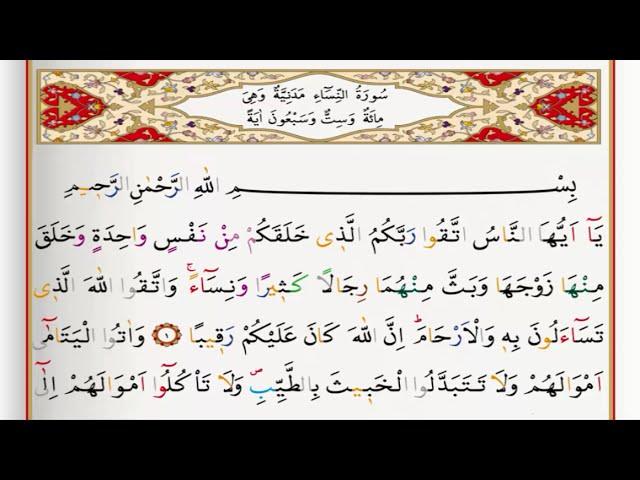 سُورَةُ النِّسَٓاءِ مَدَنِيَّةٌ وَهِيَ
مِائَةٌ وَسِتٌّ وَسَبْعُونَ اٰيَةً
بِسْمِ اللّٰهِ الرَّحْمٰنِ الرَّحٖيمِ
يَٓا اَيُّهَا النَّاسُ اتَّقُوا رَبَّكُمُ الَّذٖى خَلَقَكُمْ مِنْ نَفْسٍ وَاحِدَةٍ وَخَلَقَ
مِنْهَا زَوْجَهَا وَبَثَّ مِنْهُمَا رِجَالًا كَثٖيرًا وَنِسَٓاءًۚ وَاتَّقُوا اللّٰهَ الَّذٖى
تَسَٓاءَلُونَ بِهٖ وَالْاَرْحَامَۜ اِنَّ اللّٰهَ كَانَ عَلَيْكُمْ رَقٖيبًا ۝١ وَاٰتُوا الْيَتَامٰٓى
اَمْوَالَهُمْ وَلَا تَتَبَدَّلُوا الْخَبٖيثَ بِالطَّيِّبِۖ وَلَا تَأْكُلُٓوا اَمْوَالَهُمْ اِلٰٓى